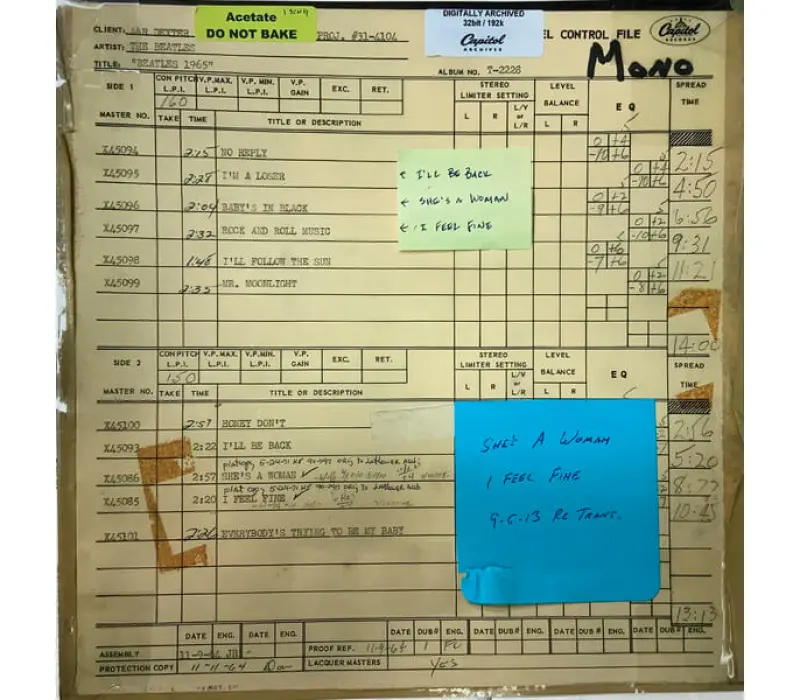 Acetate
DO NOT BAKE
DIGITALLY ARCHIVED
32bit / 192k
Capitol
ARCHIVES
CLIENT:
PROJ. #31-4104
EL CONTROL FILE
Capitol
RECORDS
ARTIST: THE BEATLES
MONO
TITLE: "BEATLES 1965"
ALBUM NO. T-2228
SIDE 1
CON PITCH L.P.I.
V.P.MAX. L.P.I.
V.P. MIN. L.P.I.
V.P. GAIN
EXC.
RET.
STEREO LIMITER SETTING
LEVEL BALANCE
E Q
SPREAD TIME
160
L R L/V or L/R L R
MASTER NO. TAKE TIME TITLE OR DESCRIPTION
X45094 2:15 NO REPLY 0 +4 -10 +6 2:15
X45095 2:28 I'M A LOSER 0 +4 -10 +6 4:50
X45096 2:04 BABY'S IN BLACK 0 +2 -9 +6 6:56
X45097 2:32 ROCK AND ROLL MUSIC 0 +2 -10 +6 9:31
X45098 1:46 I'LL FOLLOW THE SUN 0 +6 -7 +6 11:21
X45099 2:35 MR. MOONLIGHT 0 +2 -8 +6
14:00
← I'LL BE BACK
← SHE'S A WOMAN
← I FEEL FINE
SIDE 2
CON PITCH L.P.I.
V.P.MAX. L.P.I.
V.P.MIN. L.P.I.
V.P. GAIN
EXC.
RET.
STEREO LIMITER SETTING
LEVEL BALANCE
E Q
SPREAD TIME
150
L R L/V or L/R L R
MASTER NO. TAKE TIME TITLE OR DESCRIPTION
X45100 2:57 HONEY DON'T 2:56
X45093 2:22 I'LL BE BACK 5:20
X45086 2:57 SHE'S A WOMAN
X45085 2:20 I FEEL FINE 10:45
X45101 2:26 EVERYBODY'S TRYING TO BE MY BABY
13:13
SHE'S A WOMAN
I FEEL FINE
9-6-13 RE TRANS.
DATE ENG. DATE ENG. DATE DUB# ENG. DATE DUB# ENG. DATE DUB# ENG. DATE DUB# ENG.
ASSEMBLY 11-9-64 JR
PROOF REF. 11-9-64 1
PROTECTION COPY 11-11-64
LACQUER MASTERS YES